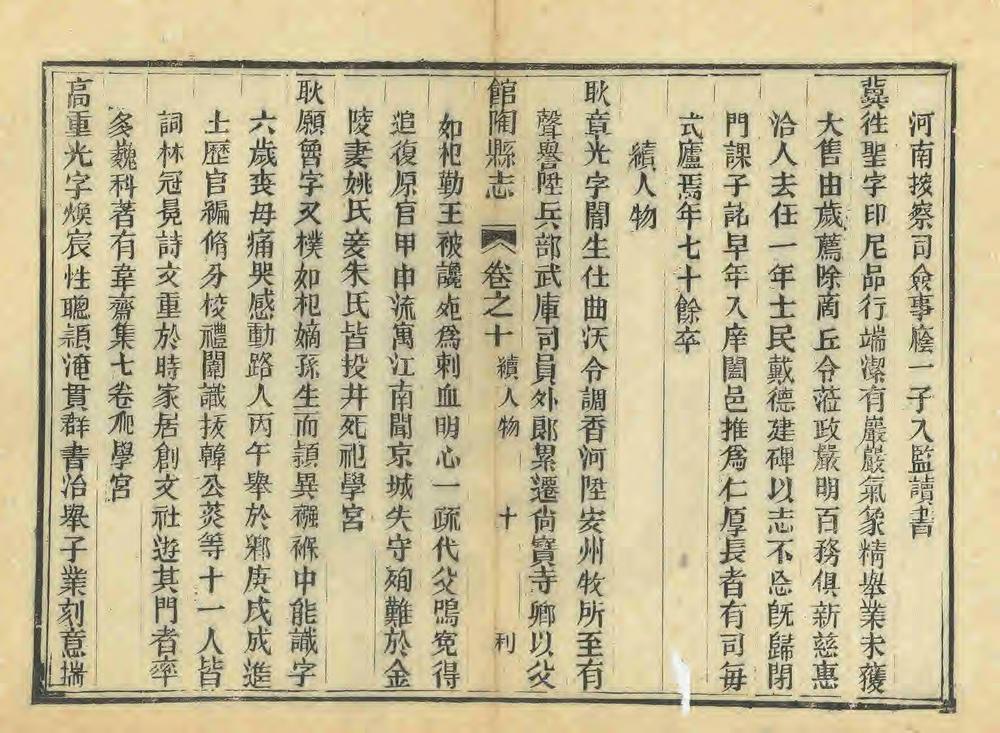 河南按察司僉事廕一子入監讀書
冀徃聖字印尼品行端潔有巖巖氣象精舉業未獲
大售由歲薦除商丘令蒞政嚴明百務俱新慈惠
洽人去任一年士民戴德建碑以志不忘旣歸閉
門課子詺早年入庠闔邑推爲仁厚長者有司每
式廬焉年七十餘卒
續人物
耿章光字闇生仕曲沃令調香河陞安州牧所至有
聲譽陞兵部武庫司員外郎累遷尚寶寺卿以父
館陶縣志 卷之十 續人物 十 利
如杞勤王被讒死爲刺血明心一疏代父鳴寃得
追復原官甲申流寓江南聞京城失守殉難於金
陵妻姚氏妾朱氏皆投井死祀學宮
耿願魯字又樸如杞嫡孫生而頴異襁褓中能識字
六歲喪母痛哭感動路人丙午舉於鄉庚戌成進
士歷官編脩分校禮闈識拔韓公菼等十一人皆
詞林冠冕詩文重於時家居創文社遊其門者率
多巍科著有韋齋集七卷祀學宮
高重光字煥宸性聰頴淹貫群書冶舉子業刻意揣